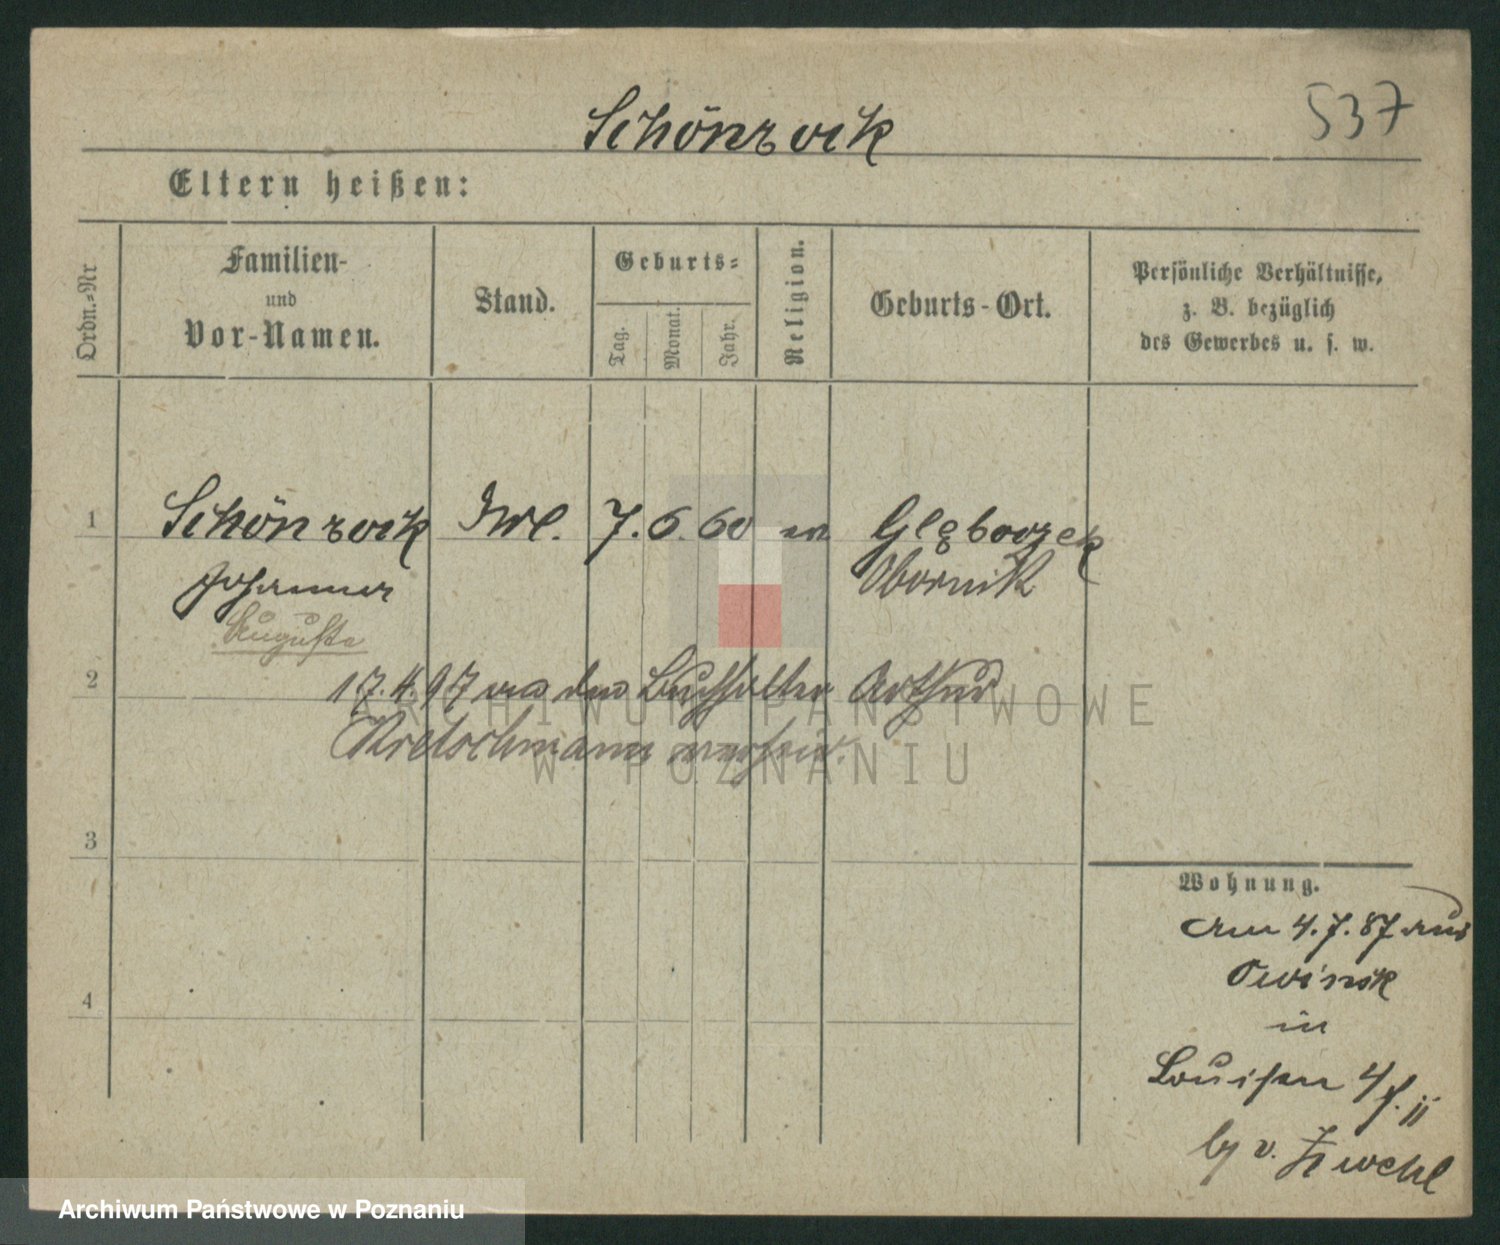 Schönrock
537
Eltern heißen:
Ordn.=Nr
Familien-
und
Vor-Namen.
Stand.
Geburts=
Tag.
Monat.
Jahr.
Religion.
Geburts-Ort.
Persönliche Verhältnisse,
z. B. bezüglich
des Gewerbes u. s. w.
1
Schönrock
7. 6. 60
Obornik
Johanna
Auguste
2
17.4.97 den Buchhalter Arthur
Kretschmann
ARCHIWUM PAŃSTWOWE
W POZNANIU
3
Wohnung.
4.7.87 aus
Owinsk
4
in
Louisen 4
v.
Archiwum Państwowe w Poznaniu